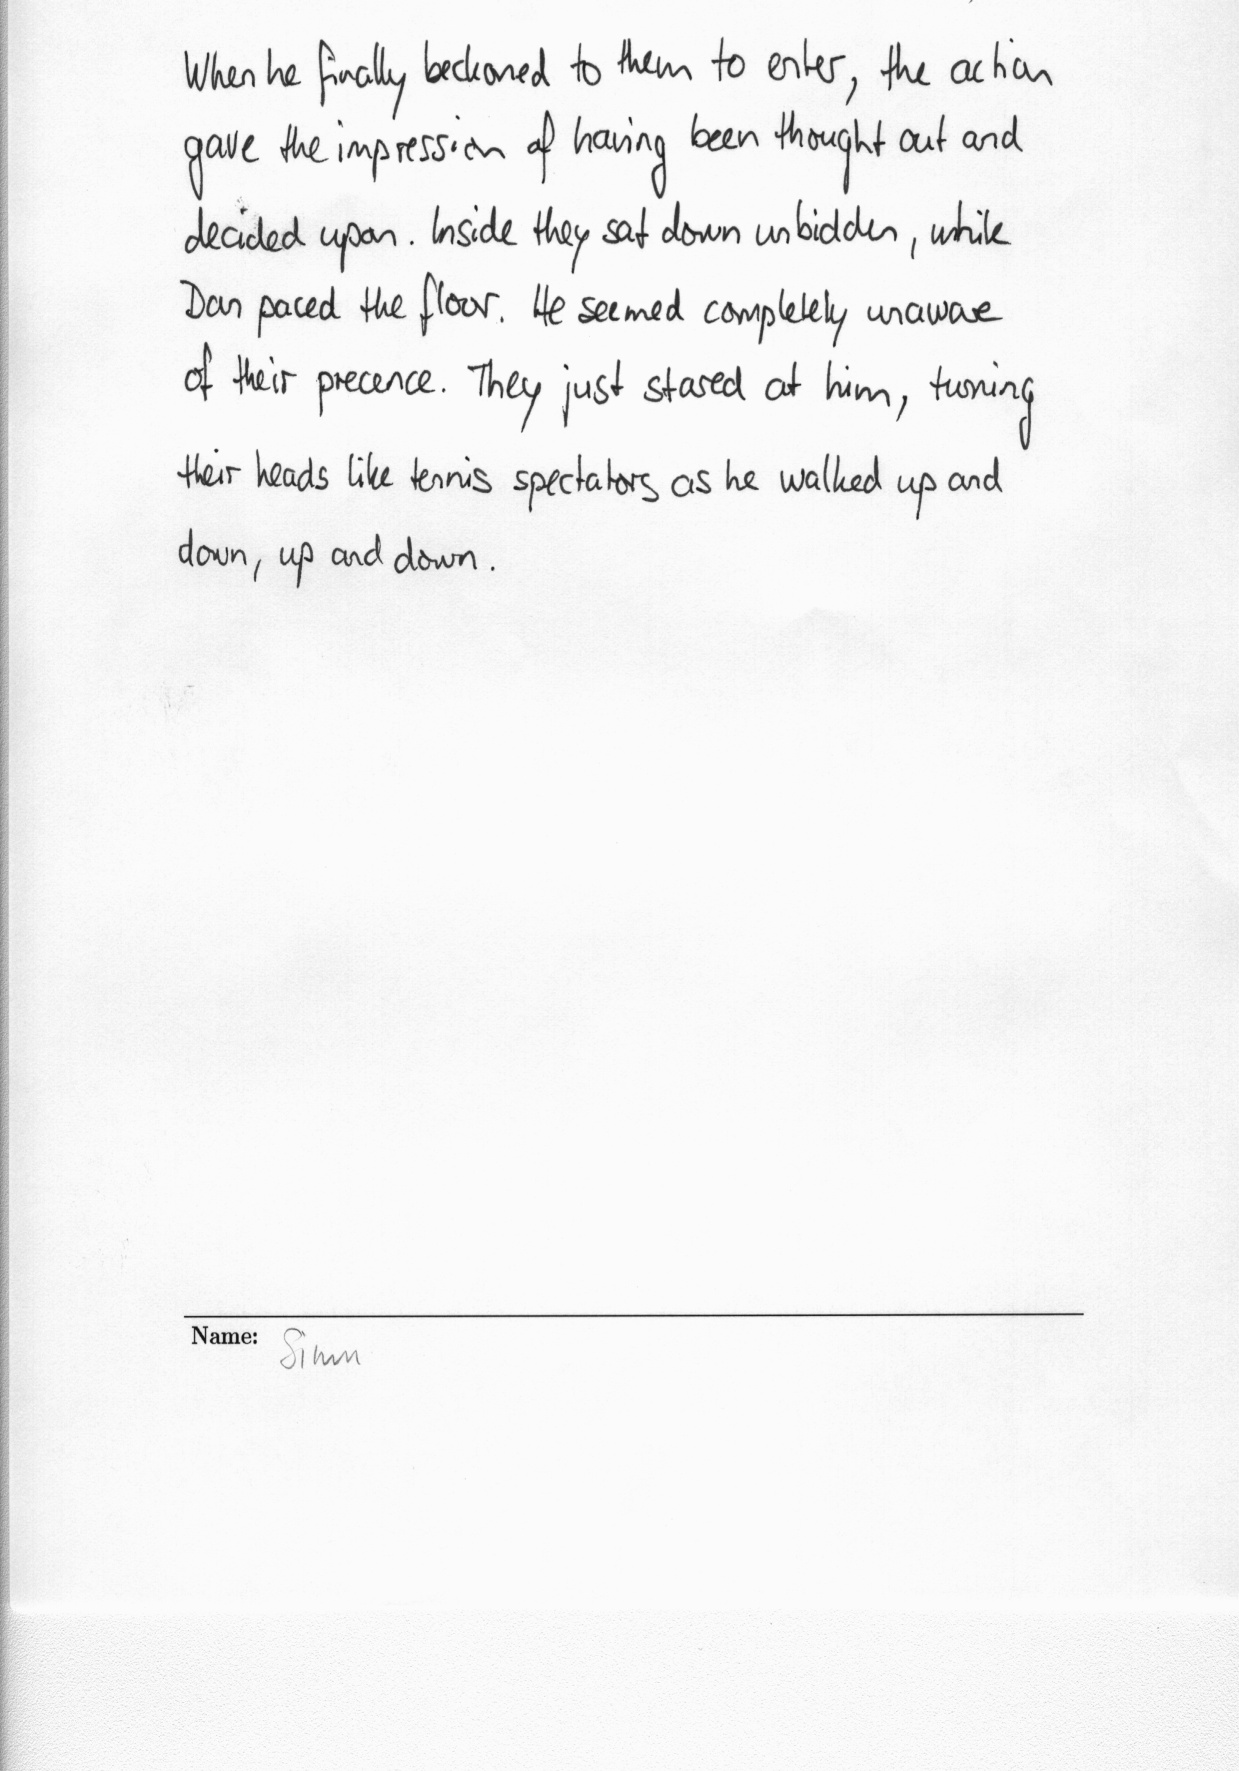 When he finally beckoned to them to enter, the action
gave the impression of having been thought out and
decided upon. Inside they sat down unbidden, while
Dan paced the floor. He seemed completely unaware
of their precence. They just stared at him, turning
their heads like tennis spectators as he walked up and
down, up and down.
Name: